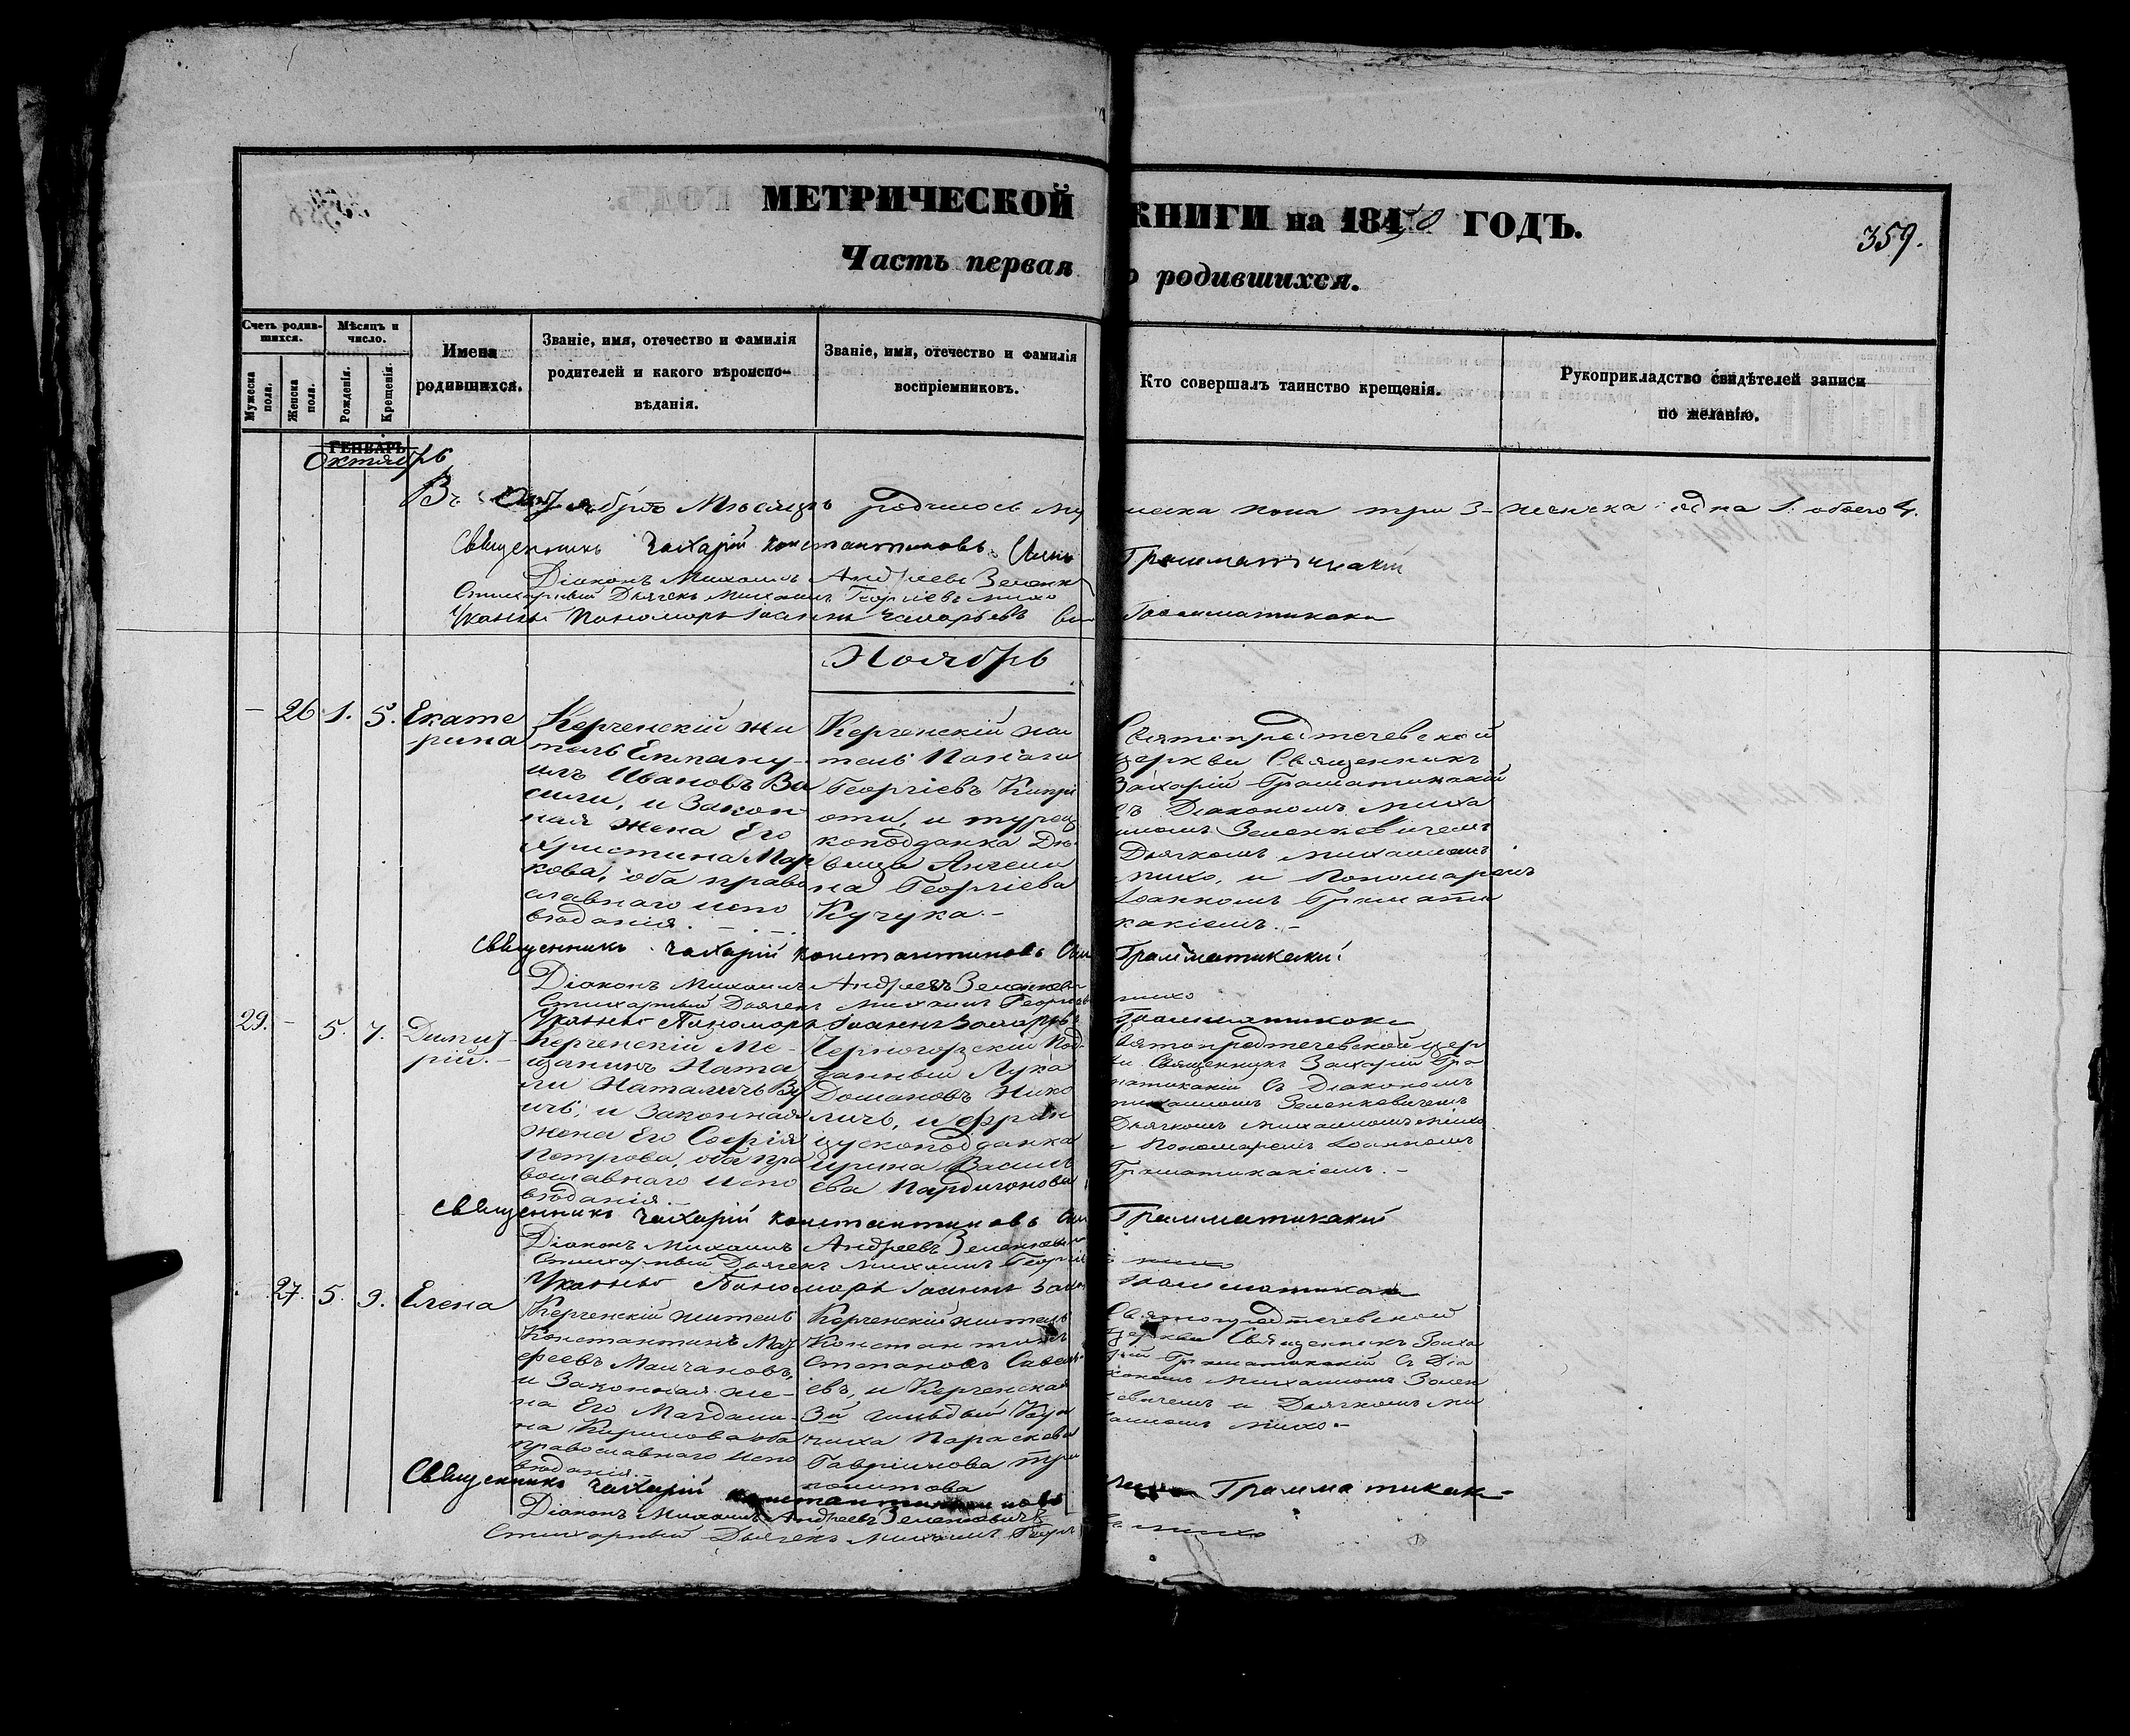 МЕТРИЧЕСКОЙ КНИГИ на 1850 ГОДЪ.
359.
Часть первая о родившихся.
Счетъ родившихся.
Мужеска пола.
Женска пола.
Мѣсяцъ и число.
Рожденія.
Крещенія.
Имена родившихся.
Званіе, имя, отечество и фамилія
родителей и какого вѣроиспо-
вѣданія.
Званіе, имя, отечество и фамилія
воспріемниковъ.
Кто совершалъ таинство крещенія.
Рукоприкладство свидѣтелей записи
по желанію.
ГЕНВАРЬ
Октябрь
Въ Октябрѣ Мѣсяцѣ родилось мужеска пола три 3 - женска одна 1. обоего 4.
Священникъ Захарій Константиновъ Грамматикакій
Діаконъ Михаилъ Андреевъ Зеленк
Стихарный Дьячекъ Михаилъ Георгіевъ Михо
Указный Пономарь Іоаннъ Захарьевъ Грамматикаки
Ноябрь
– 26 1. 5.
Екате
рина
Керченскій жи
тель Емману-
илъ Ивановъ Ва
сили, и Закон
ная жена Его
Христина Мар
кова, оба право
славнаго испо
вѣданія.
Керченскій жи
тель Панаги
Георгіевъ Кипрі
оти, и турец
коподданка Дѣ-
вица Ангели
на Георгіева
Кучука. –
Святопредтечевской
церкви Священникъ
Захарій Граматикакій
съ Діакономъ Миха
иломъ Зеленкевичемъ
Дьячкомъ Михаиломъ
Михо, и Пономаремъ
Іоанномъ Грамати
какіемъ. –
Священникъ Захарій Константиновъ Грамматикакій
Діаконъ Михаилъ Андреевъ Зеленкеви
Стихарный Дьячекъ Михаилъ Георгіевъ Михо
Указный Пономарь Іоаннъ Захарьевъ Грамматикаки
29. – 5. 7.
Димит
рій. –
Керченскій Ме-
щанинъ Ната
ли Наталичъ Ву
ичъ, и Законная
жена Его Софія
Петрова, оба пра
вославнаго испо
вѣданія.
Черногорскій Под-
данный Лука
Домановъ Нико
личъ, и Фран
цускоподданка
Ирина Василь
ева
Святопредтечевской цер
кви Священникъ Захарій Гра
матикакій съ Діакономъ
Михаиломъ Зеленкевичемъ
Дьячкомъ Михаиломъ Михо
и Пономаремъ Іоанномъ
Граматикакіемъ. –
Священникъ Захарій Константиновъ Грамматикакій
Діаконъ Михаилъ Андреевъ Зеленкеви
Стихарный Дьячекъ Михаилъ Георгіевъ Михо
Указный Пономарь Іоаннъ Грамматикаки
27. 5. 9.
Елена
Керченскій житель
Константинъ
и Законная же-
на Его Магдали-
на Кирилова оба
православнаго испо
вѣданія.
Керченскій житель
Константинъ
Степановъ Савель-
евъ, и Керченская
3й гильдіи Куп
чиха Параскева
Гавріилова
Святопредтечевской
Церкви Священникъ Заха
рій Граматикакій съ Діа
кономъ Михаиломъ Зелен
кевичемъ и Дьячкомъ Ми
хаиломъ Михо. –
Священникъ Захарій Грамматикак
Діаконъ Михаилъ Андреевъ Зеленкевичъ
Стихарный Дьячекъ Михаилъ Георгіевъ Михо